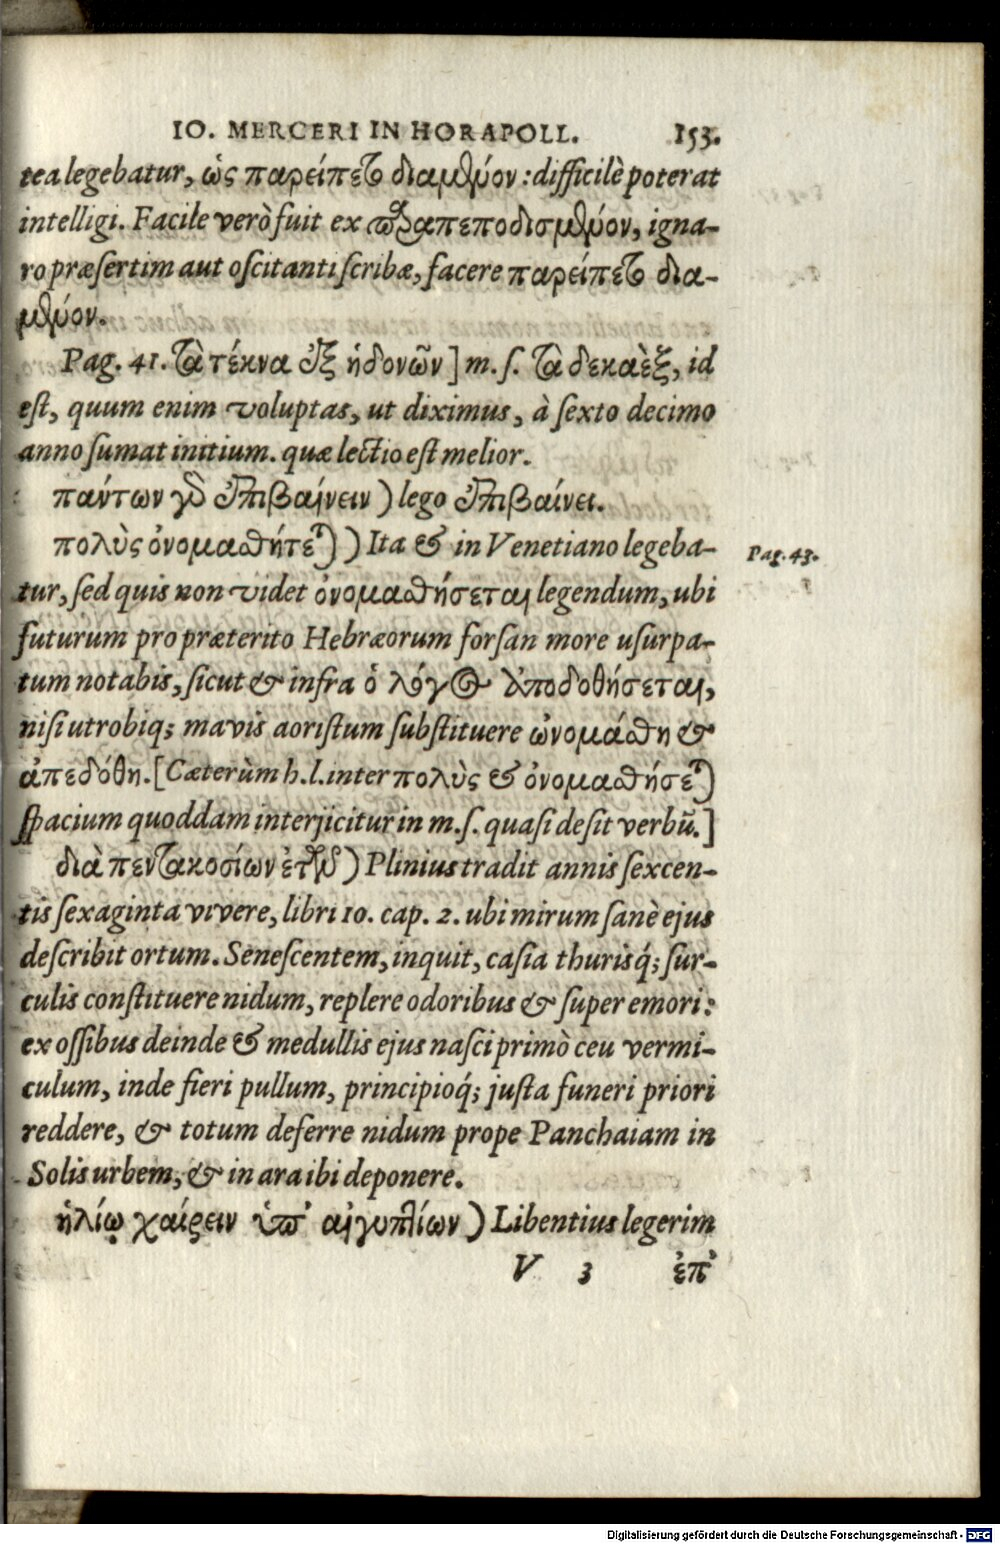 IO. MERCERI IN HORAPOLL. 153.
tea legebatur, ὡς παρείπετο διαμένον: difficilè poterat
intelligi. Facile verò fuit ex παραπεποδισμένον, igna-
ro præsertim aut oscitanti scribæ, facere παρείπετο δια-
μένον.
Pag. 41. Τὰ τέκνα ἐξ ἡδονῶν] m. s. Τὰ δεκαὲξ, id
est, quum enim voluptas, ut diximus, à sexto decimo
anno sumat initium. quæ lectio est melior.
πάντων γὰρ ἐπιβαίνειν) lego ἐπιβαίνει.
πολὺς ὀνομαθήτεται) Ita & in Venetiano legeba-
Pag. 43.
tur, sed quis non videt ὀνομαθήσεται legendum, ubi
futurum pro præterito Hebræorum forsan more usurpa-
tum notabis, sicut & infra ὁ λόγος ἀποδοθήσεται,
nisi utrobiq; mavis aoristum substituere ὠνομάθη &
ἀπεδόθη. [Cæterùm h. l. inter πολὺς & ὀνομαθήσεται
spacium quoddam interjicitur in m. s. quasi desit verbū.]
διὰ πεντακοσίων ἐτῶν) Plinius tradit annis sexcen-
tis sexaginta vivere, libri 10. cap. 2. ubi mirum sanè ejus
describit ortum. Senescentem, inquit, casia thurisq́; sur-
culis constituere nidum, replere odoribus & super emori:
ex ossibus deinde & medullis ejus nasci primò ceu vermi-
culum, inde fieri pullum, principioq́; justa funeri priori
reddere, & totum deferre nidum prope Panchaiam in
Solis urbem, & in ara ibi deponere.
ἡλίῳ χαίρειν ὑπ' αἰγυπτίων) Libentius legerim
V 3 ἐπ'
Digitalisierung gefördert durch die Deutsche Forschungsgemeinschaft - DFG